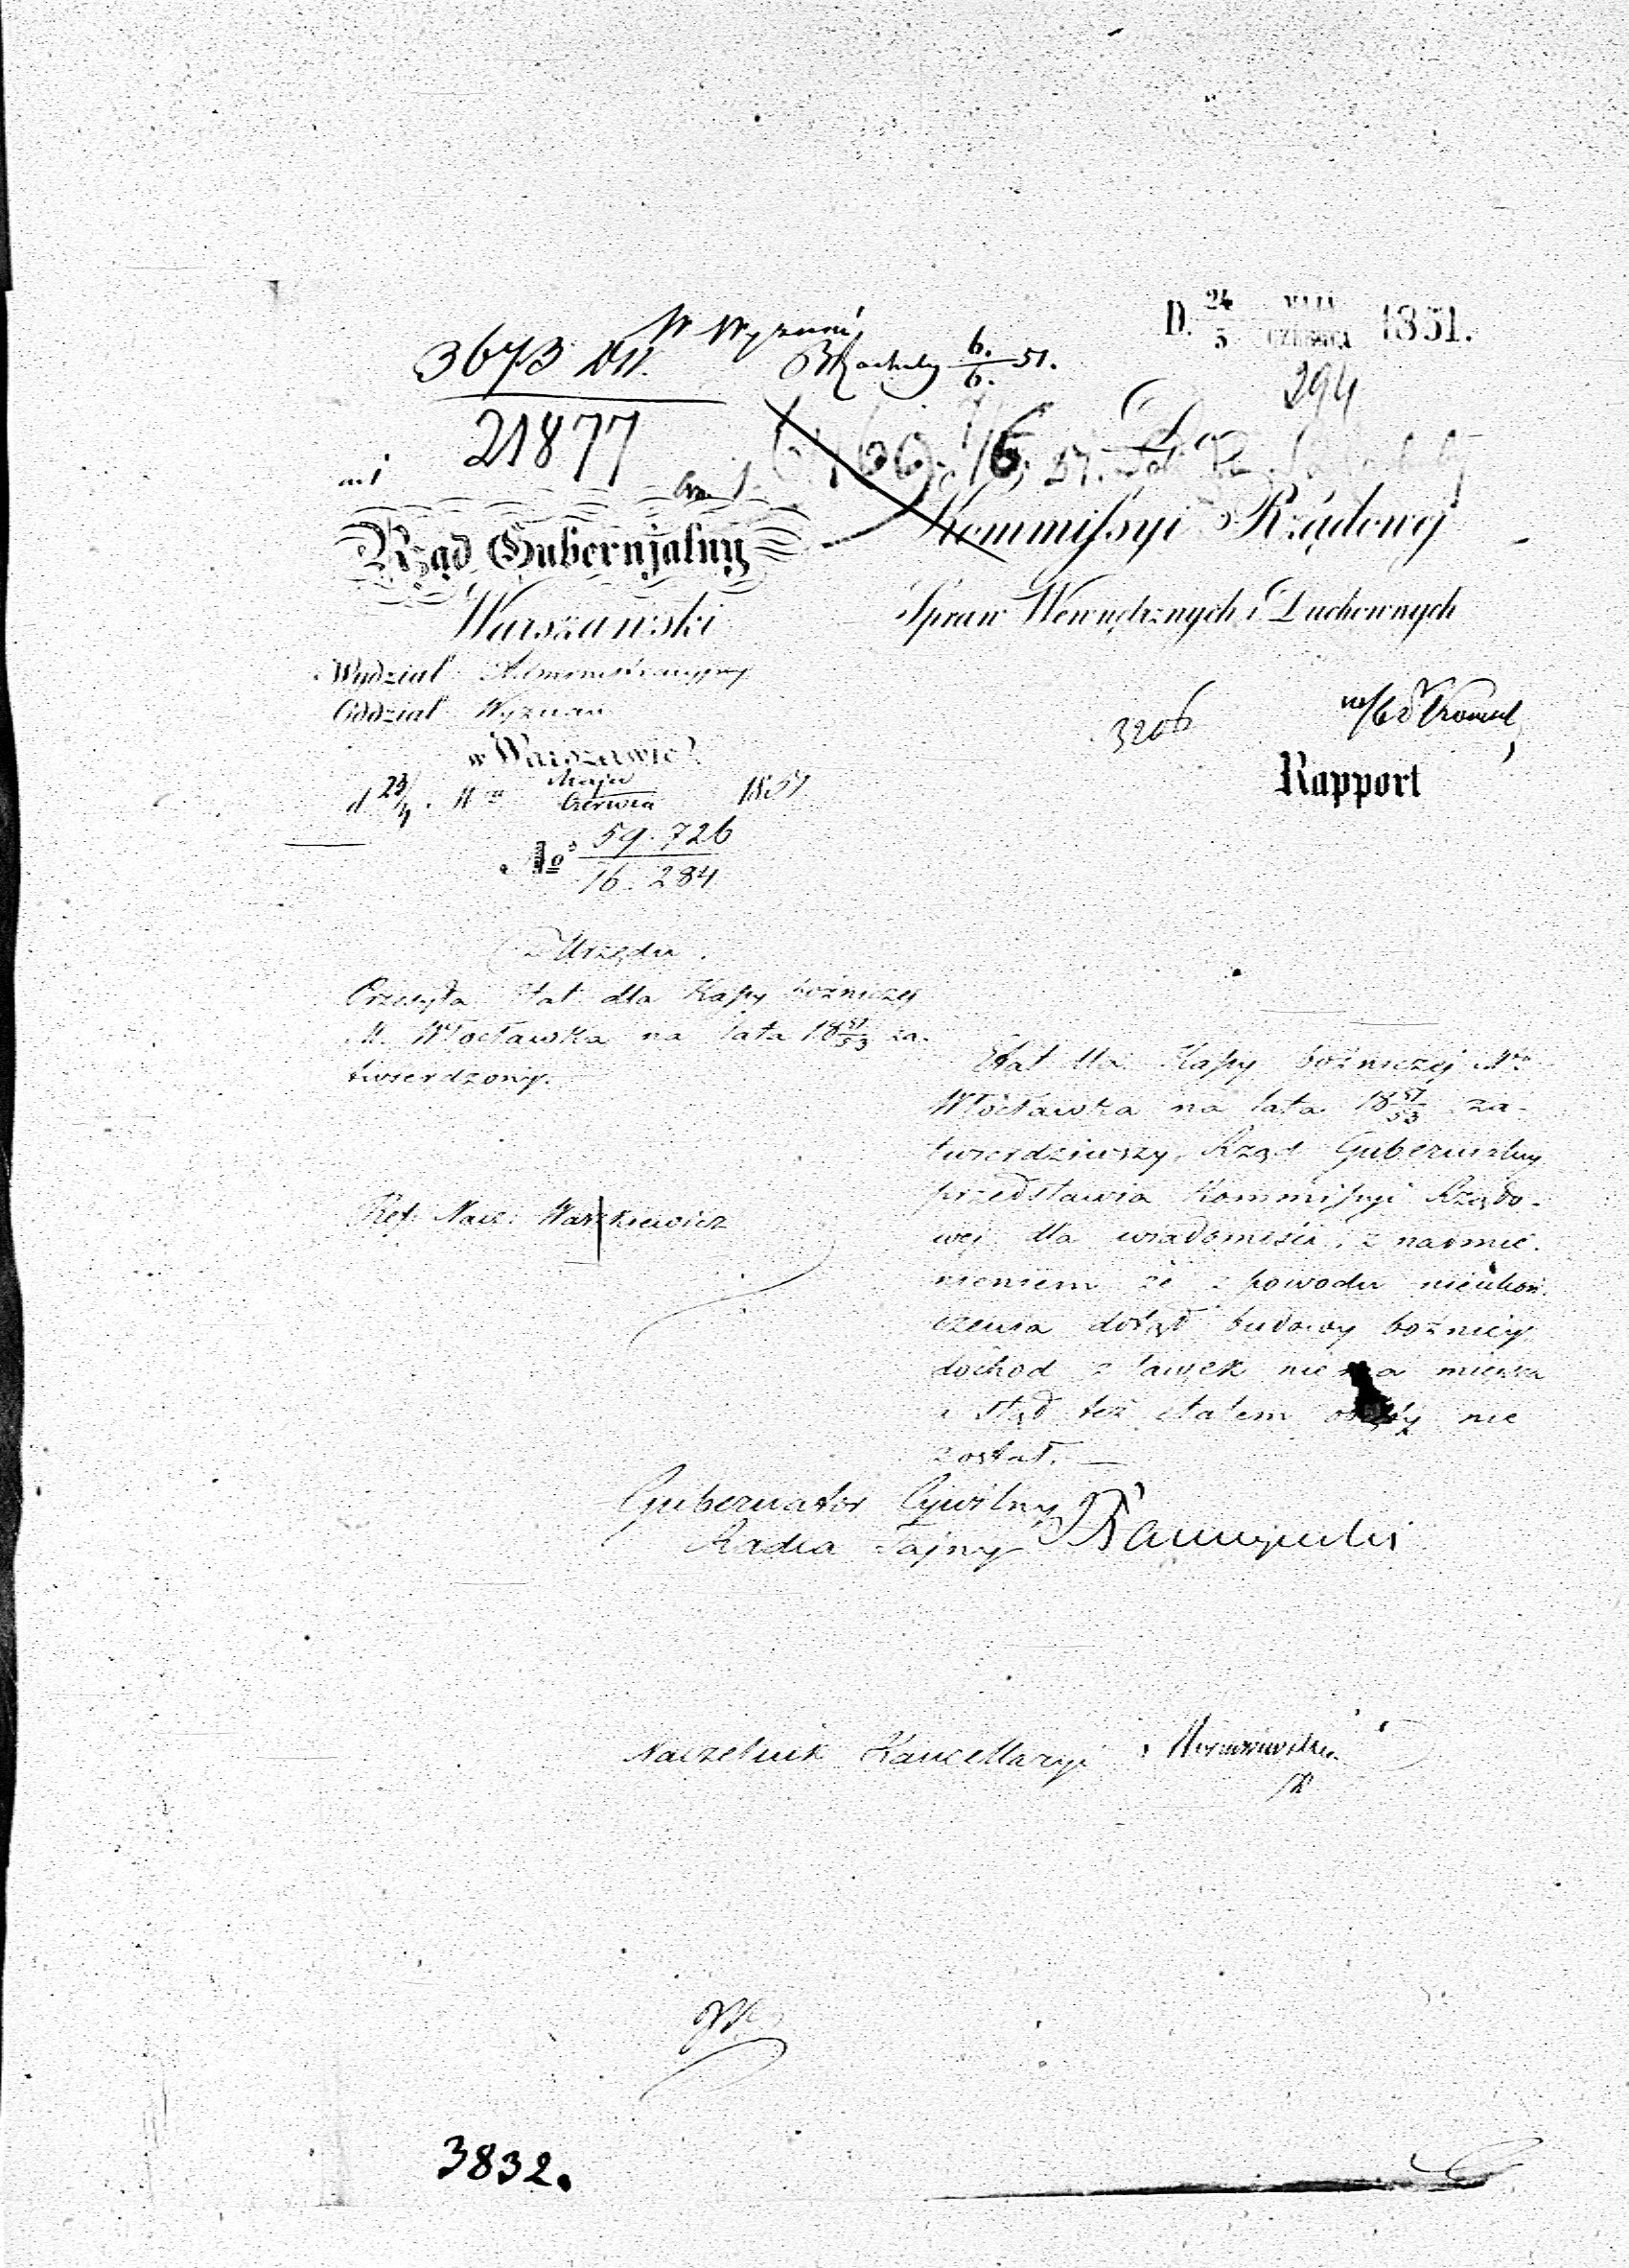 D. 24 MAJA
5 CZERWCA 1851.
294
W Wyznań
3673 DW.
21877
6/6. 51.
Do
Rząd Gubernjalny
Warszawski
Wydział Administracyjny
Oddział Wyznań
w Warszawie
d 23/4 Maja
Czerwca 1851
No 59.726
16.284
Kommissyi Rządowej
Spraw Wewnętrznych i Duchownych
3206
Rapport
Z Urzędu.
Przesyła Etat dla Kassy bożniczej
M. Włocławka na lata 18 51/53 za-
twierdzony.
Ref: Nacz: Waszkiewicz
Etat dla Kassy bożniczej Mta
Włocławka na lata 18 51/53 za-
twierdziwszy, Rząd Gubernialny
przedstawia Kommissyi Rządo-
wej dla wiadomości, z nadmie-
nieniem że z powodu nieukoń-
czenia dotąd budowy bożnicy
dochod z ławek nie ma miejsca
i stąd też etatem objęty nie
został.
Gubernator Cywilny
Radca Tajny
Naczelnik Kancellaryi
3832.